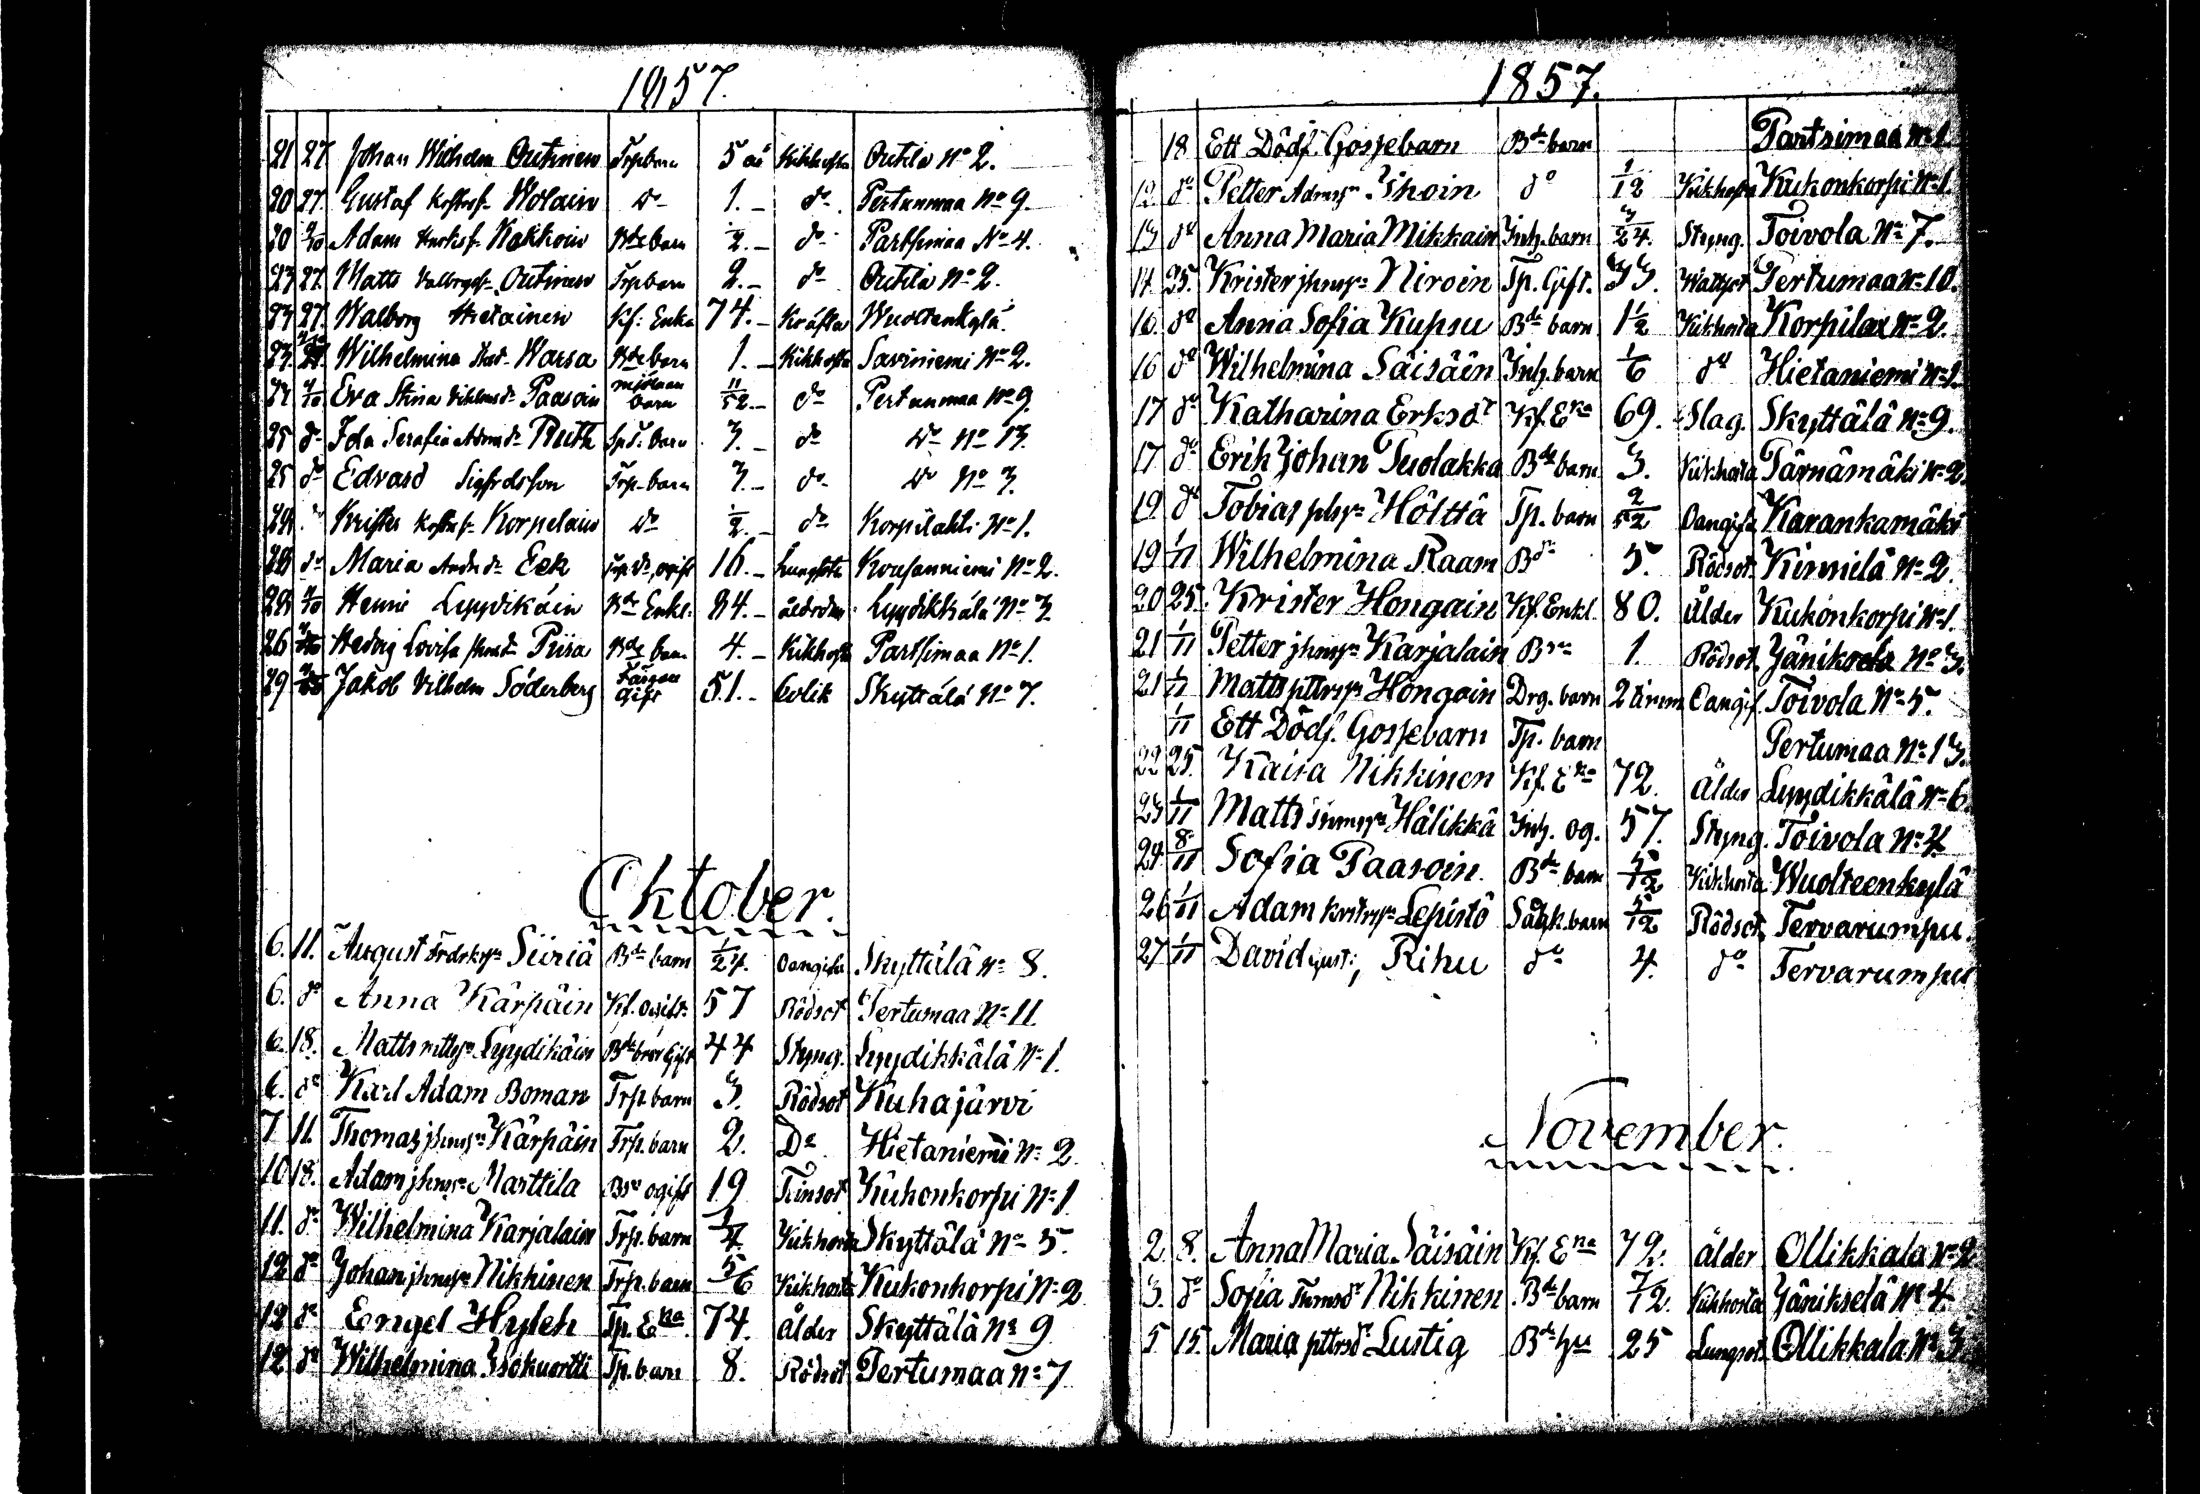 1857.
21 27 Johan Wilhelm Outinen Trp barn 5 åt Kikhosta Outila No 2.
20 27 Gustaf Holain do 1. do Pertunmaa No 9.
20 4/10 Adam Kokkoin Bde barn 1/2 do Partsimaa No 4.
23 27 Matts Outinen Trp barn 2. do Outila No 2.
23 27 Walborg Hietainen Kf: Enka 74. Kräfta Wuoltenkylä
23. Wilhelmina Warsa Bde barn 1. Kikhosta Saviniemi No 2.
27 4/10 Eva Stina Paasoin mjölnare barn 11/52 do Pertunmaa No 9.
25 do Ida Serafia Ruth barn 3. do do No 13.
25 do Edvard Sigfredsson Trp. barn 3. do do No 3.
Krister Korpelain do 1/2 do Korpilahti No 1.
28 do Maria Eek 16. Lungsot Kousanniemi No 2.
28 4/10 Henric Lyydikäin Bde Enkl: 84. ålderdom Lyydikkälä No 3
26 Hedvig Lovisa Piisa Bde barn 4. Kikhosta Partsimaa No 1.
29 Jakob Vilhelm Söderberg Färgare Gift 51. Kolik Skyttälä No 7.
Oktober.
6. 11. August Siiriä Bde barn 1/24. Oangifn Skyttälä No 8.
6. do Anna Kärpäin Kf. ogift 57 Rödsot Pertumaa No 11.
6. 18. Matts Lyydikäin Bde bror Gift 44 Styng. Lyydikkälä No 1.
6. do Karl Adam Boman Trp. barn 3. Rödsot Kuhajärvi
7 11. Thomas jhnsn Kärpäin Trp. barn 2. Do Hietaniemi No 2.
10 18. Adam jhnsn Marttila Bsn ogift 19 Tvinsot Kukonkorpi No 1
11. do Wilhelmina Karjalain Trp. barn 1/4 Kikhosta Skyttälä No 5.
12 do Johan jhnsn Nikkinen Trp. barn 5/6 Kikhosta Kukonkorpi No 2
12 do Engel Hyleh Tp. Eka 74. ålder Skyttälä No 9
12 do Wilhelmina Isokuortti Tp. barn 8. Rödsot Pertumaa No 7
1857.
18 Ett Dödf. Gossebarn Bde barn Partsimaa No 1.
12. do Petter Adamsn Ihoin do 1/12 Kikhosta Kukonkorpi No 1.
13 do Anna Maria Mikkain Inh. barn 3/24. Styng. Toivola No 7.
14. 25. Krister jhnsn Niroin Tp. Gift. 33. Wattsot Pertumaa No 10.
16. do Anna Sofia Kupsu Bde barn 1 1/2 Kikhosta Korpilax No 2.
16 do Wilhelmina Säisäin Inh. barn 1/6 do Hietaniemi No 1.
17 do Katharina Erksdr Kf. Eka 69. Slag. Skyttälä No 9.
17 do Erik Johan Tuolakka Bde barn 3. Kikhosta Pärnämäki No 2.
19. do Tobias Hölttä Tp. barn 2/52 Oangifn Karankamäki
19 1/11 Wilhelmina Raam Bdr 5. Rödsot Kinnilä No 2.
20 25. Krister Hongain Kf. Enkl. 80. Ålder Kukonkorpi No 1.
21 1/11 Petter jhnsn Karjalain Bsn 1. Rödsot Jänikselä No 3.
21 1/11 Matts pttrsn Hongain Drg. barn 2 timm Oangif. Toivola No 5.
1/11 Ett Dödf. Gossebarn Tp. barn Pertumaa No 13.
22 25. Kaisa Nikkinen Kf. Eka 72. Ålder Lyydikkälä No 6.
23 1/11 Matts Hälikkä Inh. og. 57. Styng. Toivola No 4
24. 8/11 Sofia Paasoin. Bde barn 5/12 Kikhosta Wuolteenkylä
26 1/11 Adam Lepistö barn 5/12 Rödsot Tervarumpu.
27 1/11 David gust: Rihu do 4. do Tervarumpu
November.
2. 8. Anna Maria Säisäin Kf. Eka 72. ålder Ollikkala No 2.
3. do Sofia Nikkinen Bde barn 7/12. Kikhosta Jänikselä No 4.
5 15. Maria pttrsdr Lustig Bde hu 25 Lungsot. Ollikkala No 3.